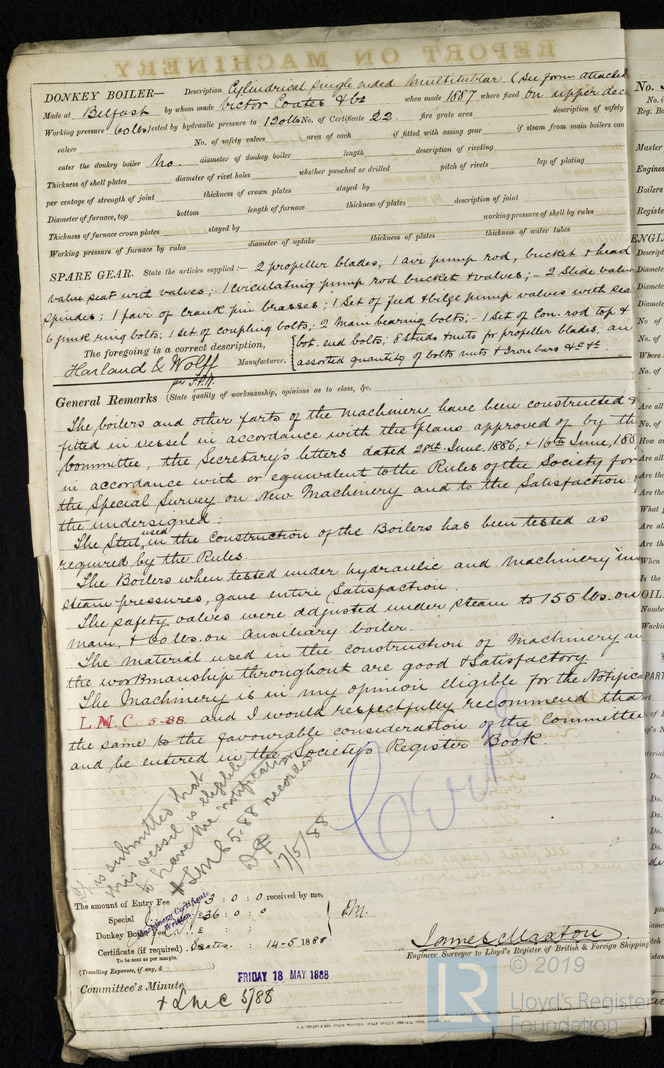 REPORT ON MACHINERY
DONKEY BOILER— Description Cylindrical single ended multitubular (See form attached
Made at Belfast by whom made Victor Coates & Co when made 1887 where fixed On upper deck
Working pressure 60lbs tested by hydraulic pressure to 120lbs No. of Certificate 22. fire grate area description of safety
valves No. of safety valves area of each if fitted with easing gear if steam from main boilers can
enter the donkey boiler No. diameter of donkey boiler length description of riveting
Thickness of shell plates diameter of rivet holes whether punched or drilled pitch of rivets lap of plating
per centage of strength of joint thickness of crown plates stayed by
Diameter of furnace, top bottom length of furnace thickness of plates description of joint
Thickness of furnace crown plates stayed by working pressure of shell by rules
Working pressure of furnace by rules diameter of uptake thickness of plates thickness of water tubes
SPARE GEAR. State the articles supplied:— 2 propeller blades, 1 air pump rod, bucket & head
valve seat with valves; 1 circulating pump rod bucket & valves; - 2 Slide valve
spindles; 1 pair of crank pin brasses; 1 Set of feed & bilge pump valves with sea
6 junk ring bolts; 1 Set of coupling bolts; 2 Main bearing bolts; - 1 Set of Con. rod top &
bot. end bolts; 8 Studs & nuts for propeller blades, an
assorted quantity of bolts nuts & Iron bars &c &c.
The foregoing is a correct description,
Harland & Wolff Manufacturer.
General Remarks (State quality of workmanship, opinions as to class, &c.
The boilers and other parts of the Machinery have been constructed &
fitted in vessel in accordance with the plans approved of by the
Committee, the Secretary's letters dated 20th June, 1886, & 16th June, 188
in accordance with or equivalent to the Rules of the Society for
the Special Survey on New Machinery and to the Satisfaction
the undersigned:
The Steel used in the Construction of the Boilers has been tested as
required by the Rules.
The Boilers when tested under hydraulic and Machinery in
steam pressures, gave entire Satisfaction.
The safety valves were adjusted under steam to 155 lbs. on
main, & 60 lbs. on auxiliary boiler.
The material used in the construction of Machinery an
the workmanship throughout are good & Satisfactory.
The Machinery is in my opinion eligible for the Notifica
L.M.C 5-88. and I would respectfully recommend tha
the same to the favourable consideration of the Committee
and be entered in the Society's Register Book.
It is submitted that
this vessel is eligible
to have the notification
+ LMC 5.88 recorded
17/5/88
The amount of Entry Fee £3 : 0 : 0 received by me,
Special £36 : 0 : 0
Donkey Boiler Fee £ : :
Machinery Certificate
Written.
Certificate (if required) 14-5 1888
To be sent as per margin.
(Travelling Expenses, if any, £
James Maxton
Engineer Surveyor to Lloyd's Register of British & Foreign Shipping
Committee's Minute
FRIDAY 18 MAY 1888
+ LMC 5/88
© 2019
LR
Lloyd's Register
Foundation